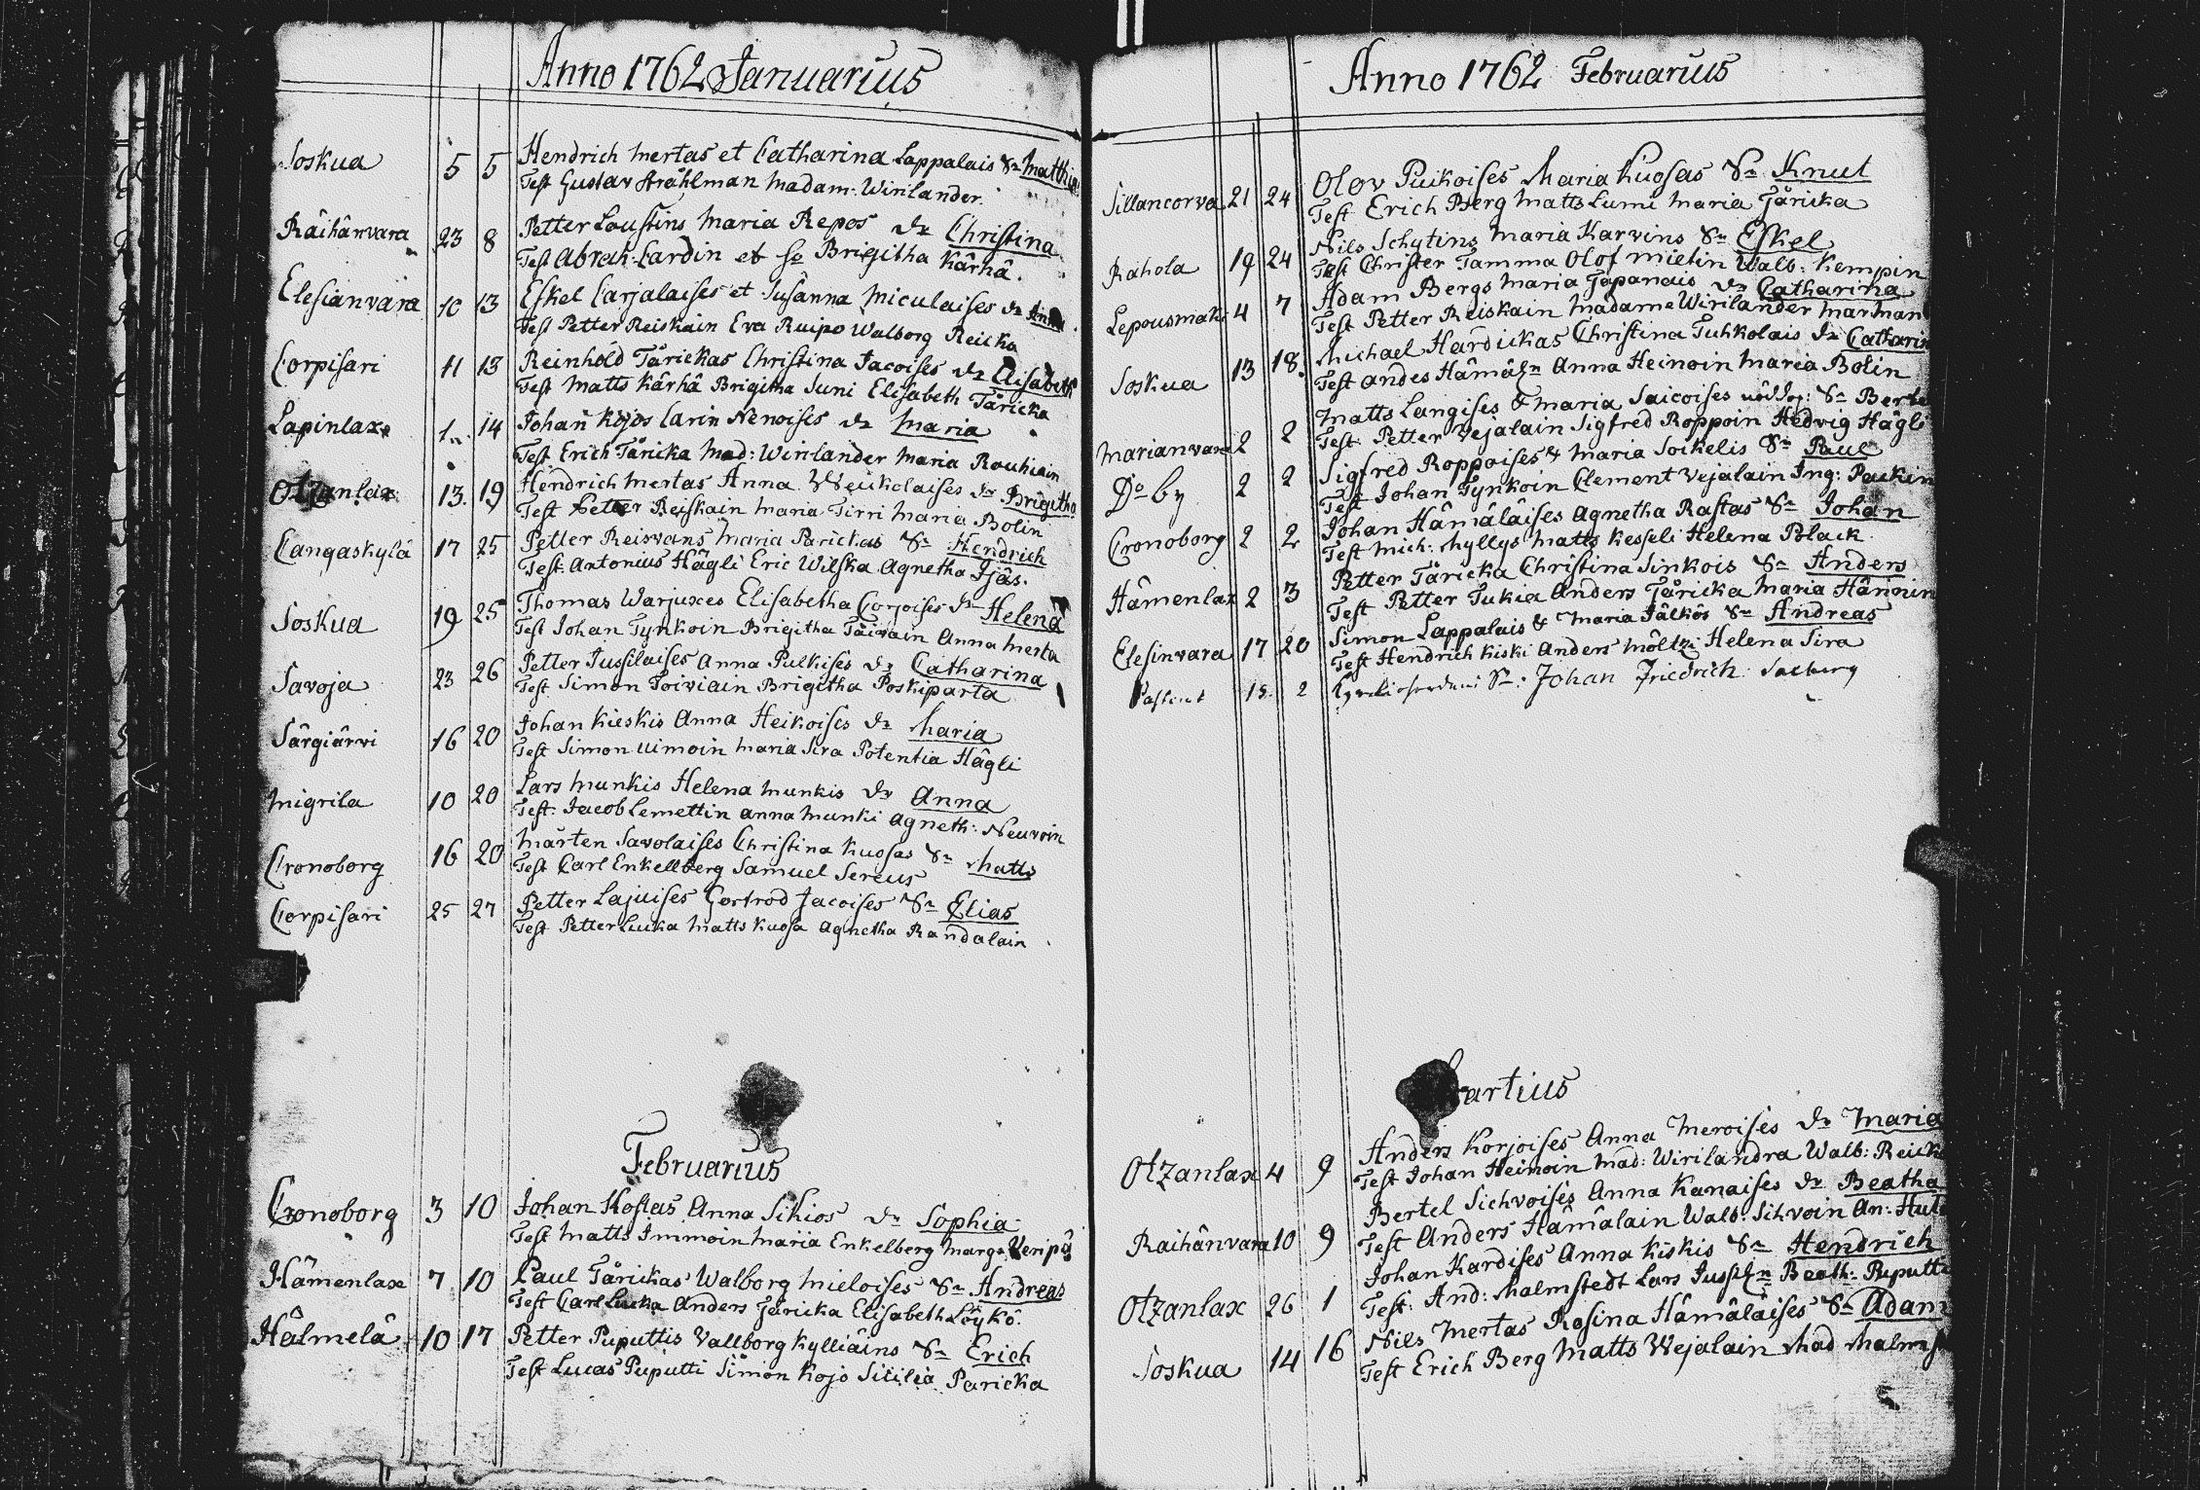 Anno 1762 Januarius
Joskua 5 5 Hendrich Mertas et Catharina Lappalais Sn Matthias
Test Gustav Stråhlman Madam: Winlander.
Räihänvara 23 8 Petter Laustins Maria Repos dr Christina
Test Abrah: Cardin et So Brigitha Kärhä.
Elesianvara 10 13 Eskel Carjalaises et Susanna Miculaises dr Anna
Test Petter Reiskain Eva Ruipo Walborg Reicka
Corpisari 11 13 Reinhold Tårickas Christina Jacoises dr Elisabeth
Test Matts Kärhä Brigitha Suni Elisabeth Tåricka
Lapinlax 1 14 Johan Kojos Carin Nenoises dr Maria
Test Erich Tåricka Mad: Winlander Maria Rouhiain
Otzanlax 13. 19 Hendrich Mertas Anna Weikolaises dr Brigitha
Test Petter Reiskain Maria Tirri Maria Bolin
Cangaskylä 17 25 Petter Reisvans Maria Parickas Sn Hendrich
Test. Antonius Hägli Eric Wilska Agnetha Ijäs.
Joskua 19 25 Thomas Warjuxes Elisabetha Corjoises dr Helena
Test Johan Tynkoin Brigitha Täivain Anna Merta
Savoja 23 26 Petter Jussilaises Anna Pulkises dr Catharina
Test Simon Toiviain Brigitha Poskiparta
Särgiärvi 16 20 Johan Kieskis Anna Heikoises dr Maria
Test Simon Uimoin Maria Sira Potentia Hägli
Migrila 10 20 Lars Munkis Helena Munkis dr Anna
Test: Jacob Lemettin Anna Munki Agneth: Neuvoin
Cronoborg 16 20 Mårten Savolaises Christina Kuosas Sn Matts
Test Carl Enkellberg Samuel Sereus
Corpisari 25 27 Petter Lajuises Gertrod Jacoises Sn Elias
Test Petter Lucka Matts Kuosa Agnetha Randalain
Februarius
Cronoborg 3 10 Johan Kostas Anna Sikios dr Sophia
Test Matts Immoin Maria Enkelberg Marga Veripä
Hämenlax 7 10 Paul Tårickas Walborg Mieloises Sn Andreas
Test Carl Lucka Anders Tåricka Elisabeth Löykö.
Hälmelä 10 17 Petter Puputtis Vallborg Kylliäins Sn Erich
Test Lucas Puputti Simon Kojo Sicilia Paricka
Anno 1762 Februarius
Sillancorva 21 24 Olov Puikoises Maria Kuosas Sn Knut
Test Erich Berg Matts Lumi Maria Tåricka
Rahola 19 24 Nils Schytins Maria Karvins Sn Eskel
Test Christer Tamma Olof Mielin Walb: Kempin
Lepousmaki 4 7 Adam Bergs Maria Tapanais dr Catharina
Test Petter Reiskain Madame Wirilander Mar Man
Joskua 13 18. Michael Hardickas Christina Tuhkolais dr Catharin
Test Andes Hämäln Anna Heinoin Maria Bolin
Marianvara 2 2 Matts Langises & Maria Saicoises Sn Bertel
Test: Petter Vejalain Sigfred Roppoin Hedvig Hägli
Do by 2 2 Sigfred Roppoises & Maria Soikelis Sn Paul
Test Johan Tynkoin Clement Vejalain Ing: Paukin
Cronoborg 2 2 Johan Hämäläises Agnetha Rastas Sn Johan
Test Mich: Myllys Matts Kesseli Helena Polack.
Hämenlax 2 3 Petter Tåricka Christina Sinkois Sn Anders
Test Petter Tukia Anders Tåricka Maria Hännin
Elesinvara 17 20 Simon Lappalais & Maria Jälkös Sn Andreas
Test Hendrich Kiski Anders Möltzi Helena Sira
15. 2 Sn: Johan Friedrich Sacberg
Martius
Otzanlax 4 9 Anders Korjoises Anna Meroises dr Maria
Test Johan Heinoin Mad: Wirilandra Walb: Reick
Raihänvara 10 9 Bertel Sichvoises Anna Kanaises dr Beatha
Test Anders Hämälain Walb: Sihvoin An: Hul
Otzanlax 26 1 Johan Kardises Anna Kiskis Sn Hendrich
Test: And: Malmstedt Lars Jussiln Beath: Puputti
Joskua 14 16 Nils Mertas Rosina Hämäläises Sn Adam
Test Erich Berg Matts Wejalain Mad Malmst